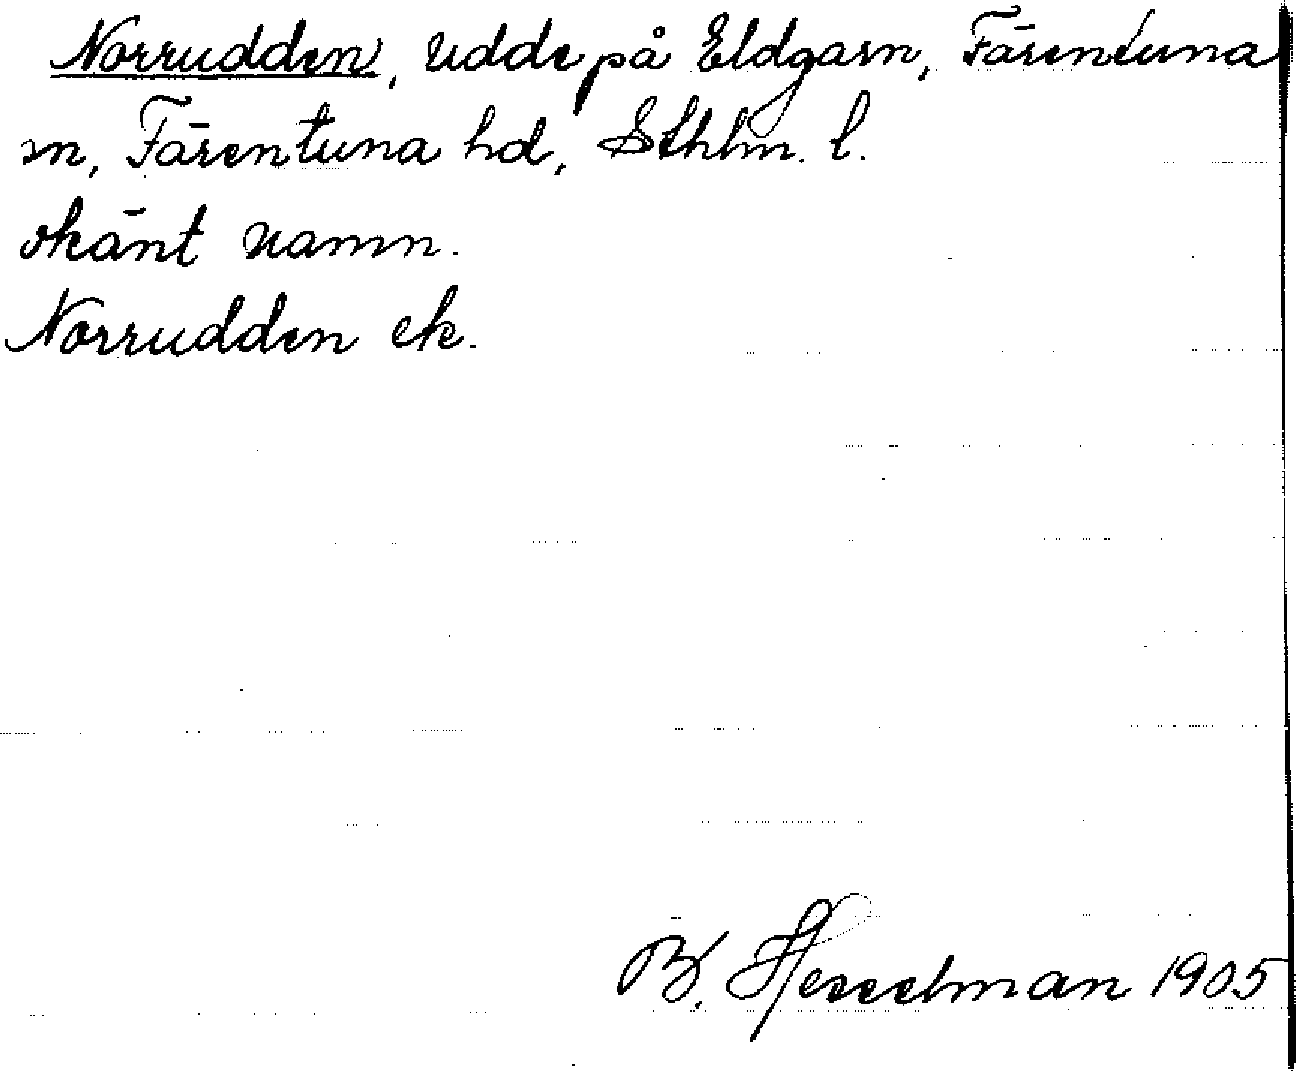 Norrudden, udde på Eldgarn, Färentuna
sn, Färentuna hd, Sthlm. l.
okänt namn.
Norrudden ek.
B. Hesselman 1905